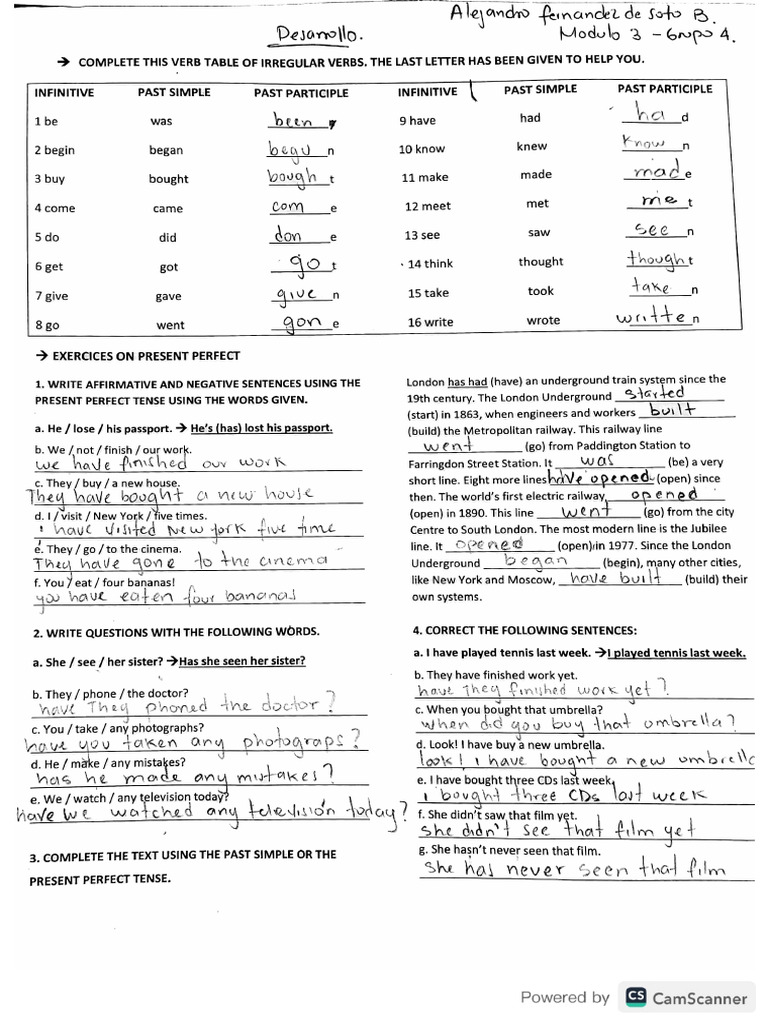 Alejandro fernandez de Soto B.
Desarrollo.
Modulo 3 - Grupo 4.
→ COMPLETE THIS VERB TABLE OF IRREGULAR VERBS. THE LAST LETTER HAS BEEN GIVEN TO HELP YOU.
INFINITIVE PAST SIMPLE PAST PARTICIPLE INFINITIVE PAST SIMPLE PAST PARTICIPLE
1 be was been 9 have had ha d
2 begin began begu n 10 know knew know n
3 buy bought bough t 11 make made mad e
4 come came com e 12 meet met me t
5 do did don e 13 see saw see n
6 get got go t 14 think thought though t
7 give gave give n 15 take took take n
8 go went gon e 16 write wrote writte n
→ EXERCICES ON PRESENT PERFECT
1. WRITE AFFIRMATIVE AND NEGATIVE SENTENCES USING THE
PRESENT PERFECT TENSE USING THE WORDS GIVEN.
a. He / lose / his passport. → He's (has) lost his passport.
b. We / not / finish / our work.
we have finished our work
c. They / buy / a new house.
They have bought a new house
d. I / visit / New York / five times.
I have visited New york five time
e. They / go / to the cinema.
They have gone to the cinema
f. You / eat / four bananas!
you have eaten four bananas
2. WRITE QUESTIONS WITH THE FOLLOWING WORDS.
a. She / see / her sister? → Has she seen her sister?
b. They / phone / the doctor?
have They phoned the doctor?
c. You / take / any photographs?
have you taken any photograps?
d. He / make / any mistakes?
has he made any mistakes?
e. We / watch / any television today?
have we watched any television today?
3. COMPLETE THE TEXT USING THE PAST SIMPLE OR THE
PRESENT PERFECT TENSE.
London has had (have) an underground train system since the
19th century. The London Underground started
(start) in 1863, when engineers and workers built
(build) the Metropolitan railway. This railway line
went (go) from Paddington Station to
Farringdon Street Station. It was (be) a very
short line. Eight more lines have opened (open) since
then. The world's first electric railway opened
(open) in 1890. This line went (go) from the city
Centre to South London. The most modern line is the Jubilee
line. It opened (open) in 1977. Since the London
Underground began (begin), many other cities,
like New York and Moscow, have built (build) their
own systems.
4. CORRECT THE FOLLOWING SENTENCES:
a. I have played tennis last week. → I played tennis last week.
b. They have finished work yet.
have They finished work yet?
c. When you bought that umbrella?
when did you buy that umbrella?
d. Look! I have buy a new umbrella.
look! I have bought a new umbrella
e. I have bought three CDs last week.
I bought three CDs last week
f. She didn't saw that film yet.
she didn't see that film yet
g. She hasn't never seen that film.
She has never seen that film
Powered by CS CamScanner